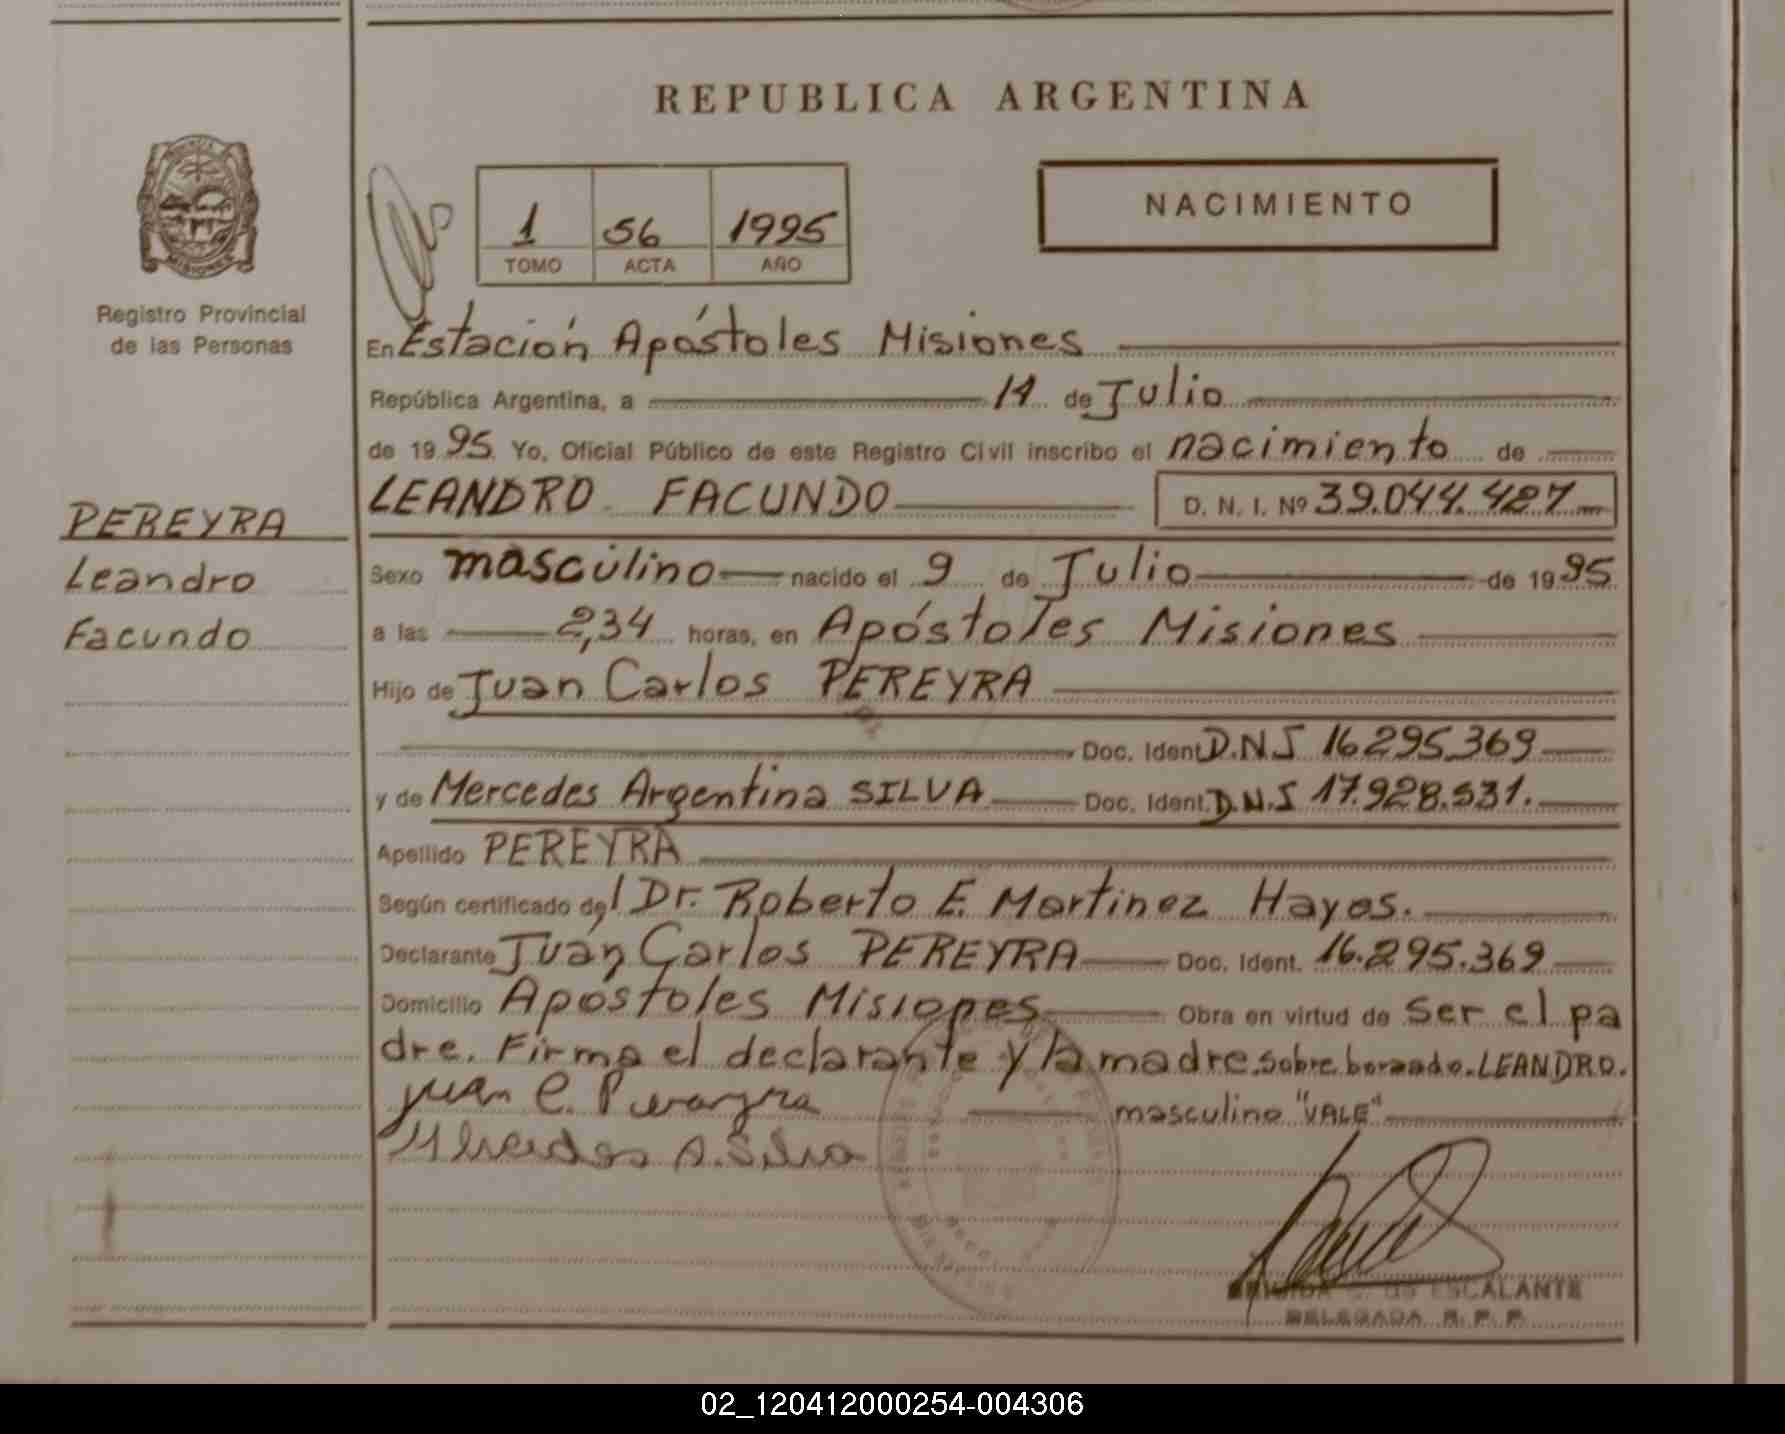 REPUBLICA ARGENTINA
MISIONES
Registro Provincial
de las Personas
1 56 1995
TOMO ACTA AÑO
NACIMIENTO
En Estación Apóstoles Misiones
República Argentina, a 14 de Julio
de 1995. Yo, Oficial Público de este Registro Civil inscribo el nacimiento de
LEANDRO FACUNDO D. N. I. Nº 39.044.487
PEREYRA
Leandro
Facundo
Sexo masculino nacido el 9 de Julio de 1995
a las 2,34 horas, en Apóstoles Misiones
Hijo de Juan Carlos PEREYRA
Doc. Ident. D.N.I 16295369
y de Mercedes Argentina SILVA Doc. Ident. D.N.I 17.928.531.
Apellido PEREYRA
Según certificado del Dr. Roberto E. Martinez Hayos.
Declarante Juan Carlos PEREYRA Doc. Ident. 16.295.369
Domicilio Apóstoles Misiones Obra en virtud de ser el pa
dre. Firma el declarante y la madre. sobre borrado. LEANDRO.
masculino "VALE"
Juan C. Pereyra
Mercedes A. Silva
DE ESCALANTE
DELEGADA R. P. P.
02_120412000254-004306